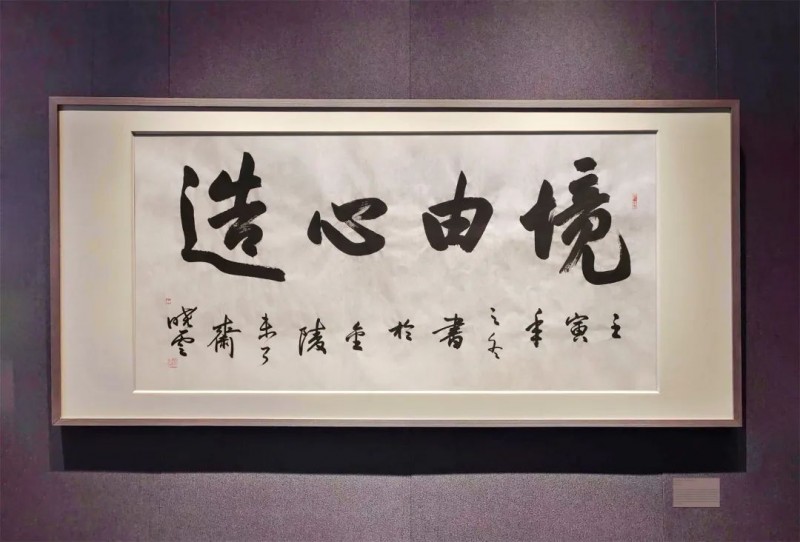 境由心造
壬寅年之冬書於金陵未了齋
曉雲